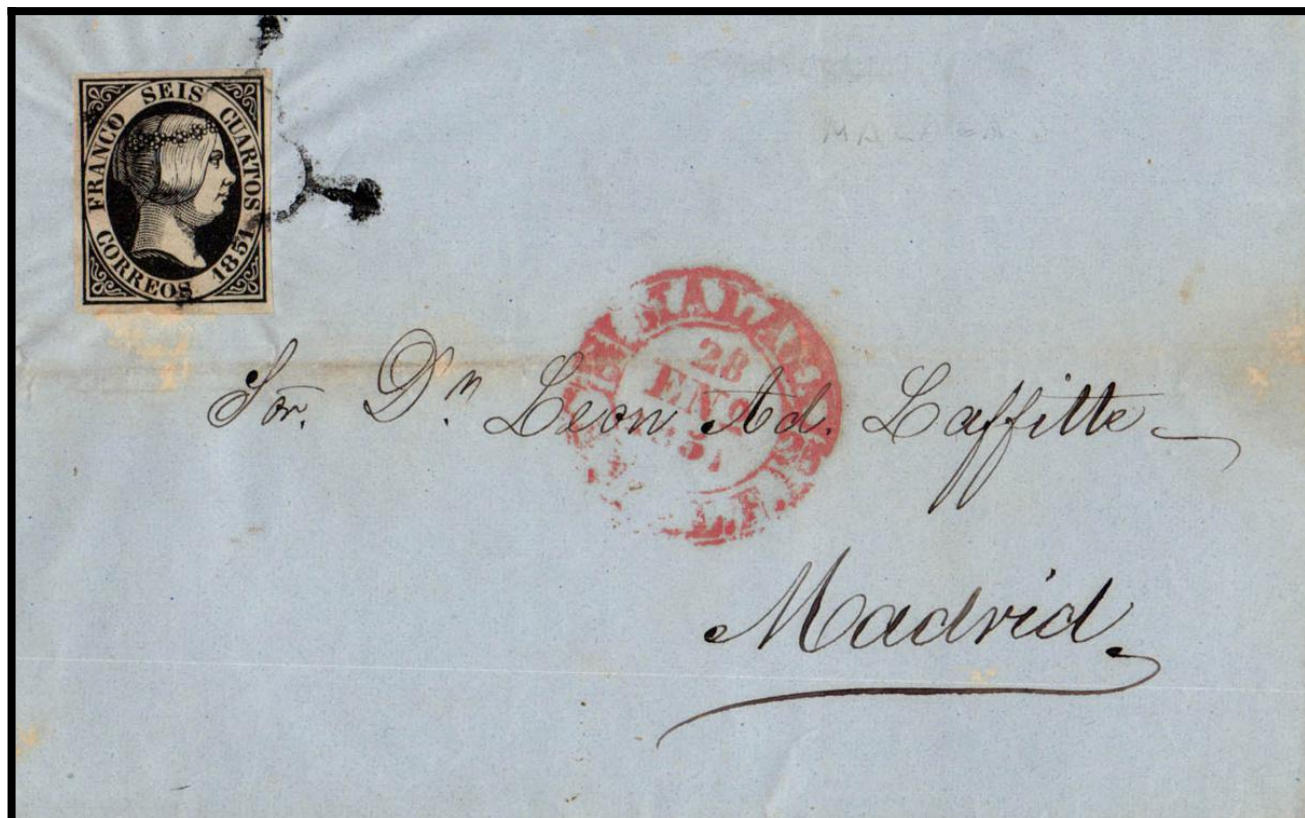 FRANCO SEIS CUARTOS
CORREOS 1851
MALAGA
MALAGA
28
ENE
Sor. Dn Leon Ad. Laffitte
Madrid.